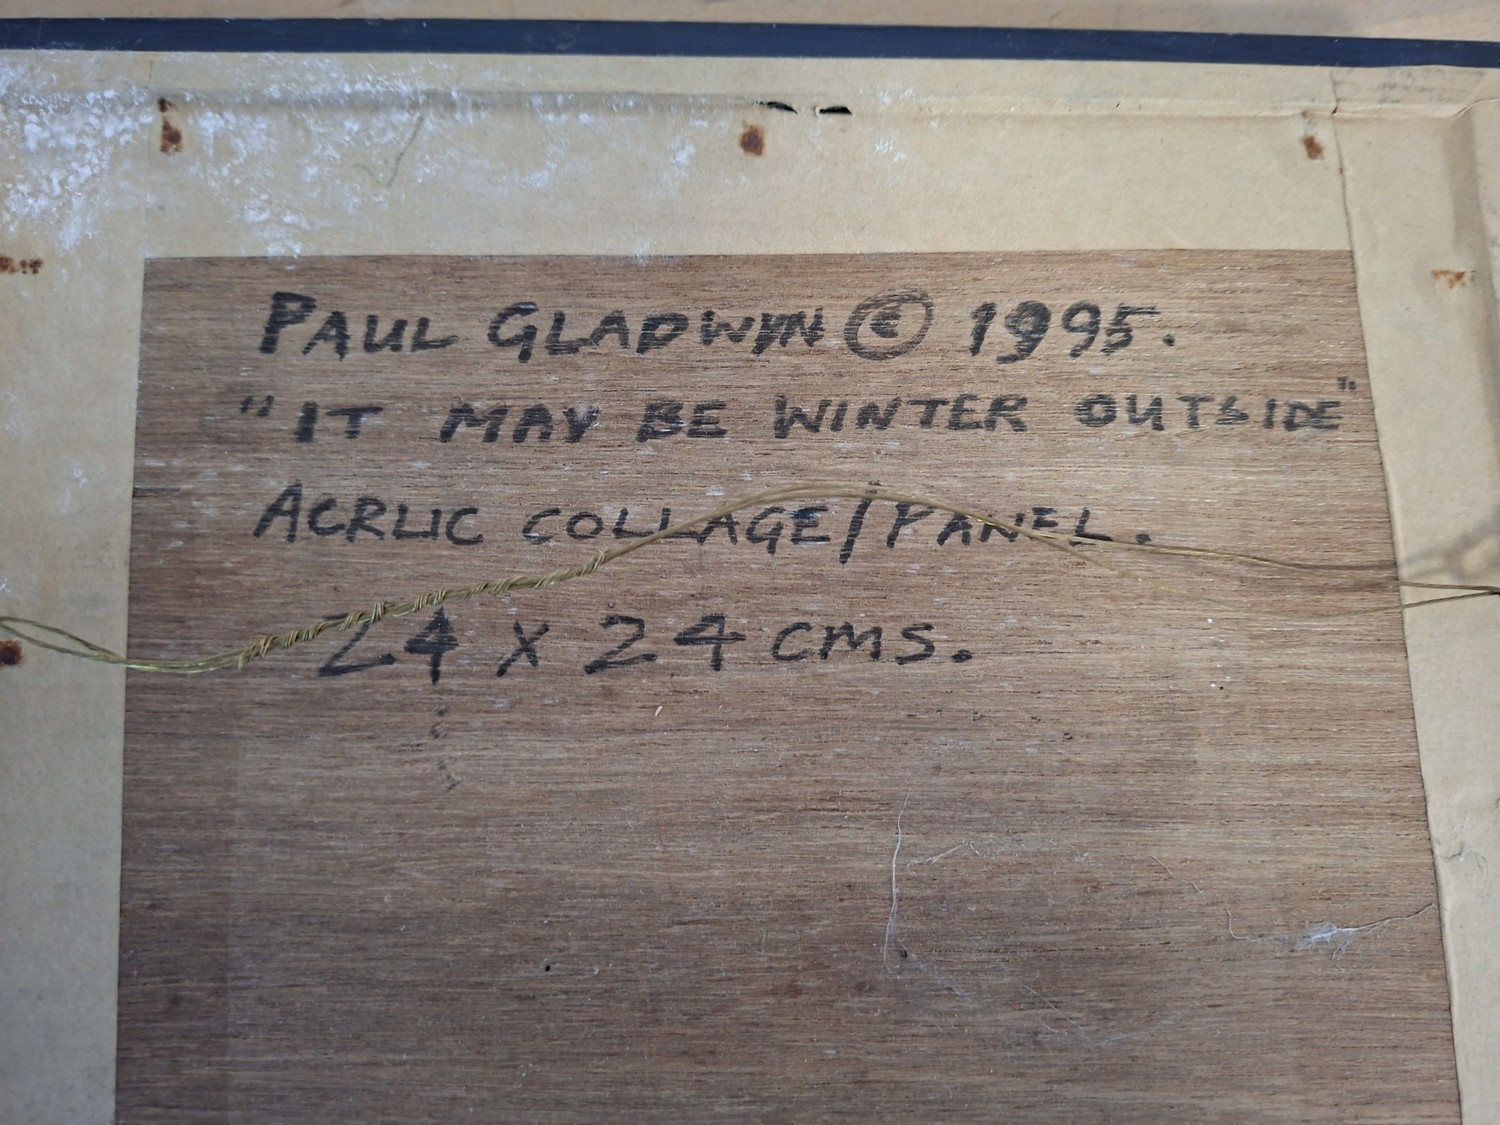 PAUL GLADWYN © 1995.
"IT MAY BE WINTER OUTSIDE"
ACRLIC COLLAGE/PANEL.
24 x 24 CMS.